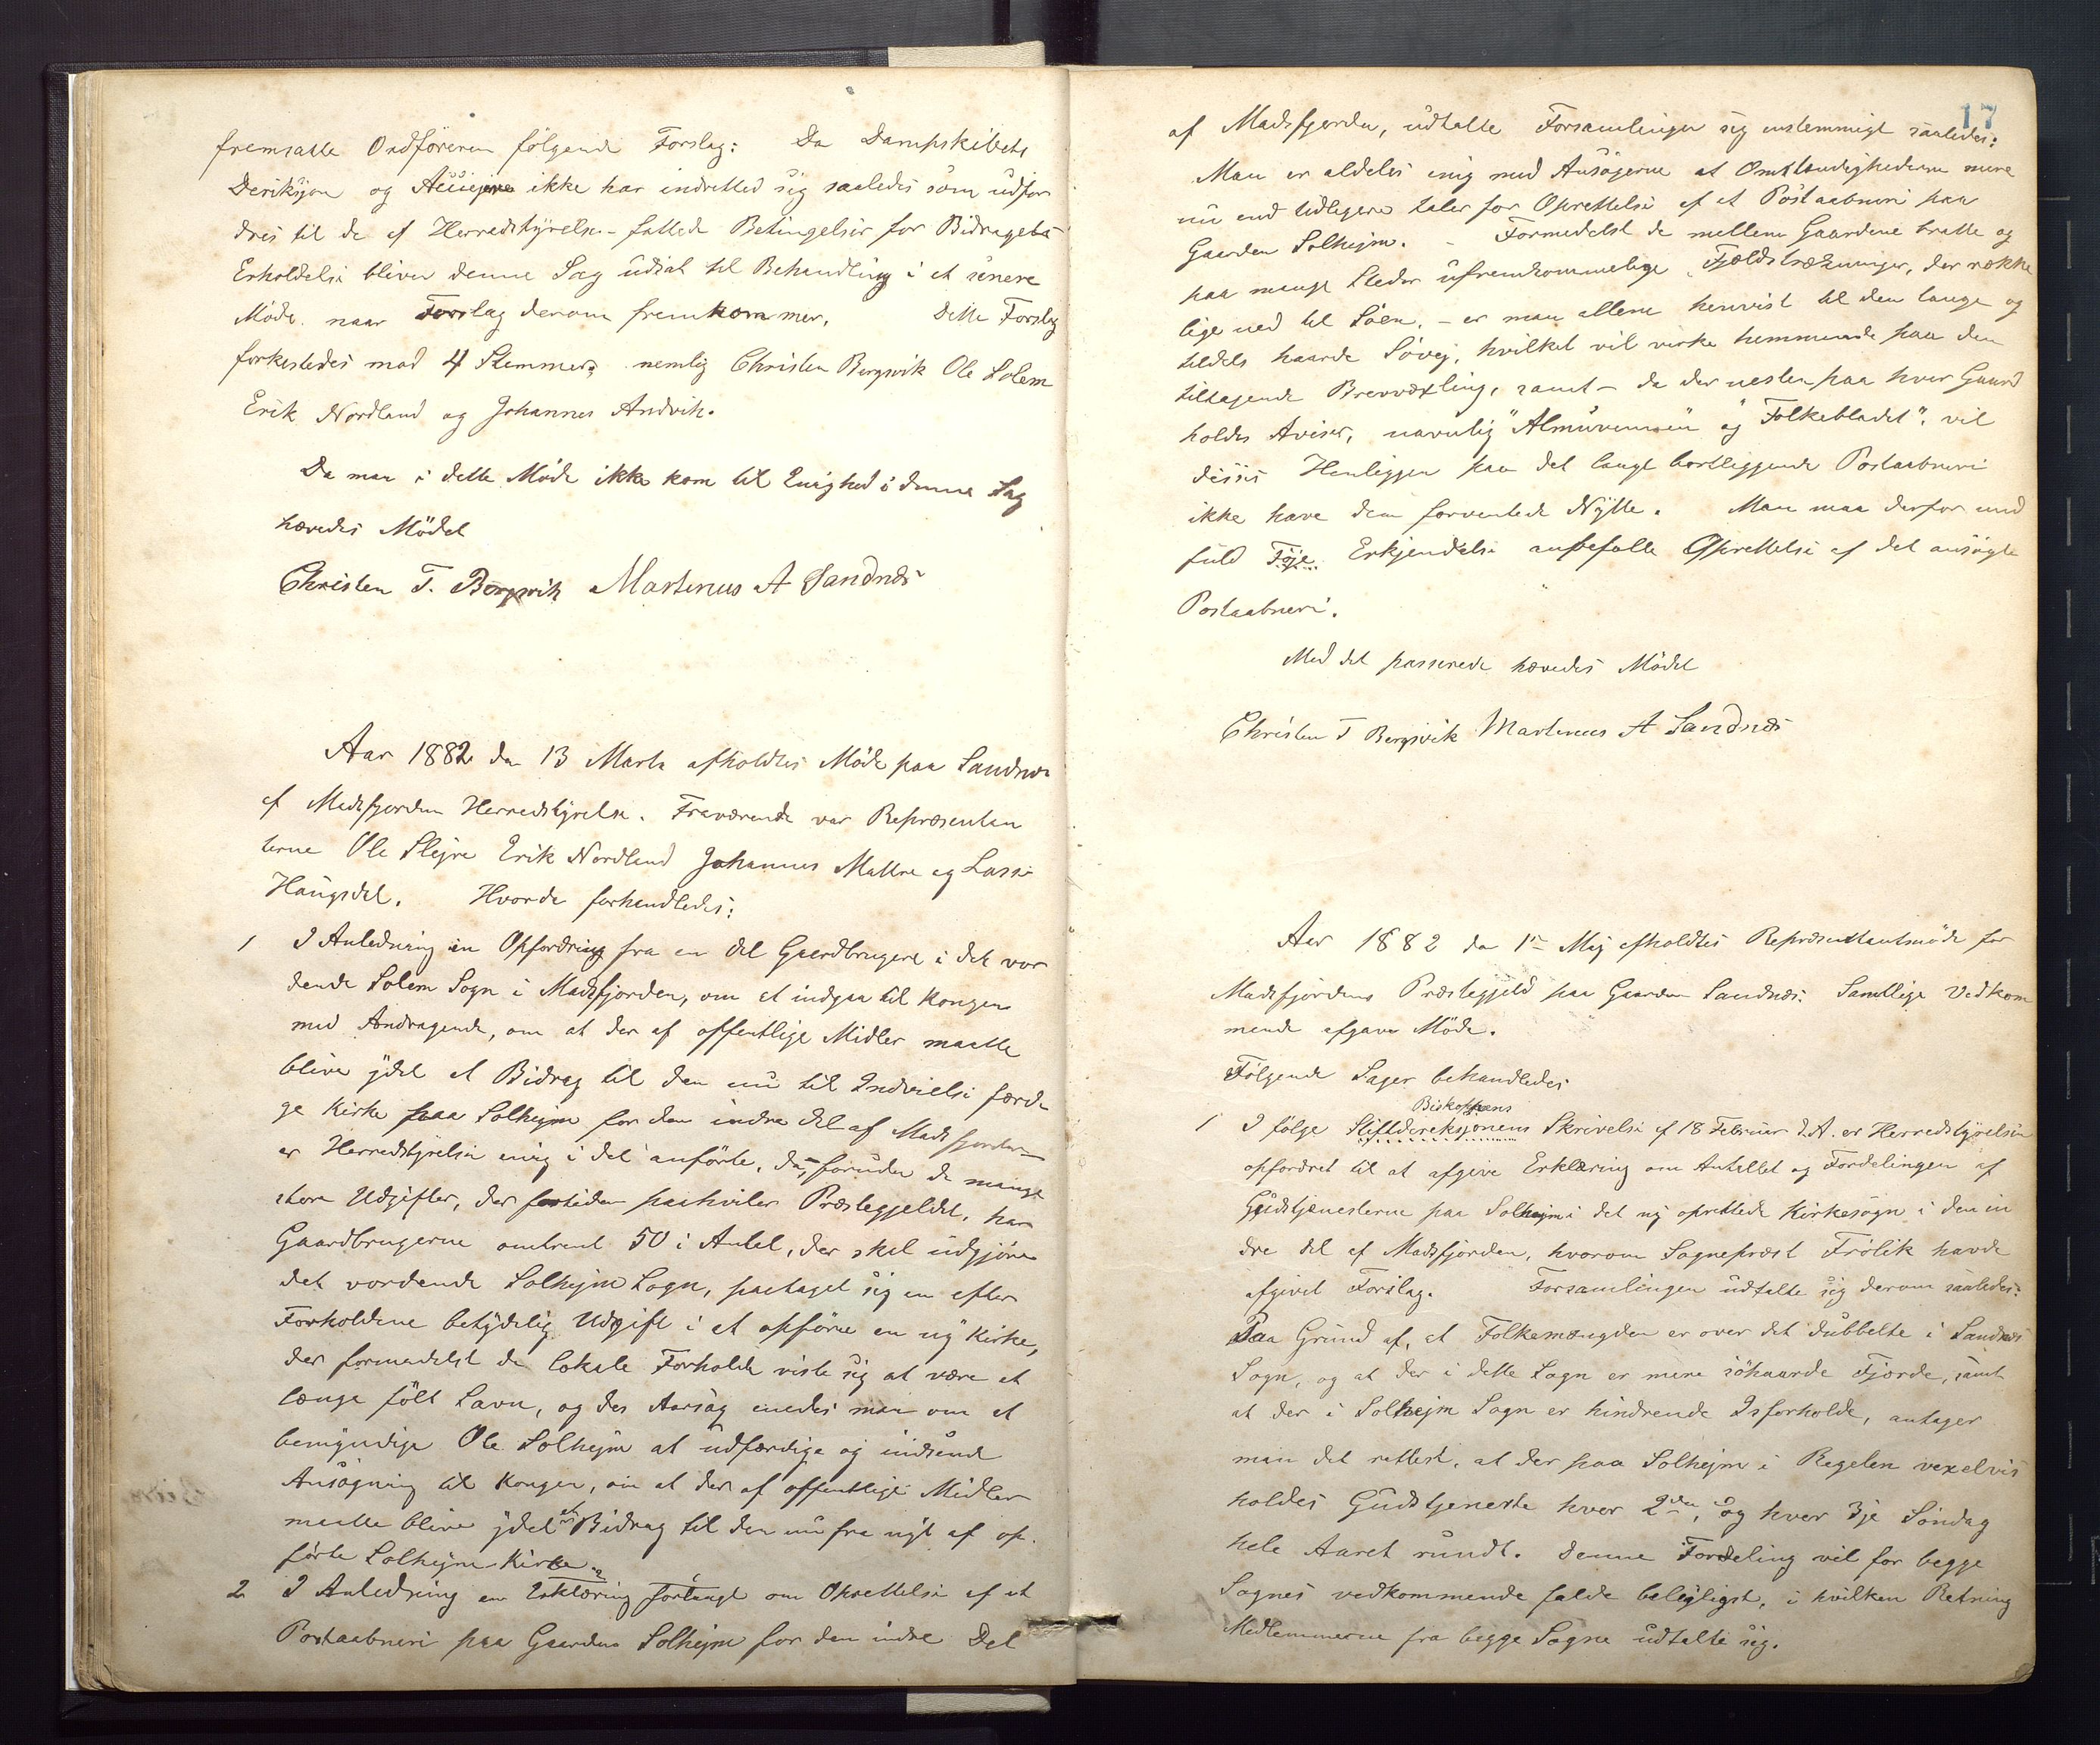 fremsatte Ordföreren følgende Forslag: Da Dampskibets
Dereksjon og ikke har indretted sig saaledes som udfor
dres til de af Herredstyrelsen fattede Betingelser for Bidragets
Erholdelse bliver denne Sag udsat til Behandling i et senere
Möde naar Forslag derom fremkommer. Dette Forslag
forkastedes mod 4 Stemmer, nemlig Christen Bergsvik Ole Solem
Erik Nordland og Johannes Andvik.
Da man i dette Möde ikke kom til Enighed i denne Sag
hævedes Mödet
Christen T. Bergsvik Martinus A Sandnæs
Aar 1882 den 13 Marts afholdtes Möde paa Sandnæs
af Madsfjorden Herredstyrelse. Fraværende var Repræsentan
terne Ole Slejre Erik Nordland Johannes Mattre og Lasse
Haugsdal. Hvorda forhandledes:
1 I Anledning en Opfordring fra en del Gaardbrugere i det vor
dende Solem Sogn i Madsfjorden, om at indgaa til Kongen
med Andragende, om at der af offentlige Midler maatte
blive ydet et Bidrag til den nu til Indvielse færdi
ge Kirke paa Solhejm for den indre del af Madsfjorden
er Herredstyrelsen enig i det anförte, da, foruden de mange
store Udgifter, der fortiden paahviler Præstegjeldet, har
Gaardbrugerne omtrent 50 i Antal, der skal udgjöre
det vordende Solhejm Sogn, paataget sig en efter
Forholdene betydelig Udgift i at opföre en ny Kirke,
der formedelst de lokale Forholde viste sig at være et
længe fölt Savn, og des Aarsag enedes man om at
bemyndige Ole Solhejm at udfærdige og indsende
Ansögning til Kongen, om at der af offentlige Midler
maatte blive ydet et Bidrag til den nu fra nyt af op
förte Solhejm Kirke
2 I Anledning en Erklæring forlangt om Oprettelse af et
Postaabneri paa Gaarden Solhejm for den indre Del
17
af Madsfjorden, udtalte Forsamlingen sig enstemmigt saaledes:
Man er aldeles enig med Ansögerne at Omstændighederne mere
nu end tidligere taler for Oprettelse af et Postaabneri paa
Gaarden Solhejm. - Formedelst de mellem Gaardene bratte og
paa mange Steder ufremkommelige Fjældstrækninger, der række
lige ned til Söen, - er man allene henvist til den lange og
tildels haarde Sövej, hvilket vil virke hemmende paa den
tiltagende Brevvexling, samt - da der nesten paa hver Gaard
holdes Aviser, navnlig "Almuvennen" og "Folkebladet", vil
disses Henliggen paa det langt bortliggende Postaabneri
ikke have den forventede Nytte. Man maa derfor med
fuld Föje Erkjendelse anbefalle Oprettelse af det ansögte
Postaabneri.
Med det passerede hævedes Mödet
Christen T Bergsvik Martinus A Sandnæs
Aar 1882 den 1ste Maj afholdtes Repræsentantmöde for
Madsfjordens Præstegjeld paa Gaarden Sandnæs. Samtlige Vedkom
mende afgave Möde.
Fölgende Sager behandledes
Biskoppens
1 I fölge Stiftdereksjonens Skrivelse af 18 Februar d.A. er Herredstyrelsen
opfordret til at afgive Erklæring om Antallet og Fordelingen af
Gudstjenesterne paa Solhejm i det ny oprettede Kirkesogn i den in
dre del af Madsfjorden, hvorom Sogneprest Frölik havde
afgivet Forslag. Forsamlingen udtalte sig derom saaledes:
Paa Grund af, at Folkemængden er over det dubbelte i Sandnæs
Sogn, og at der i dette Sogn er mere söhaarde Fjorde, samt
at der i Solhejm Sogn er hindrende Isforholde, antager
man det rettest, at der paa Solhejm i Regelen vexelvis
holdes Gudstjeneste hver 2den, og hver 3je Söndag
hele Aaret rundt. Denne Fordeling vil for begge
Sognes vedkommende falde belejligst, i hvilken Retning
Medlemmerne fra begge Sogne udtalte sig.